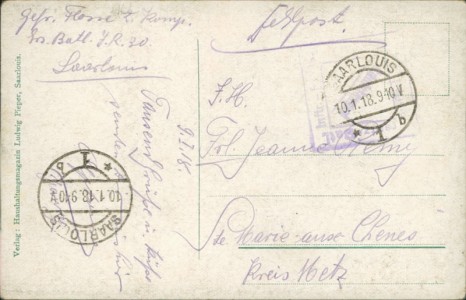 Gefr. Flosse 2. Komp.
Ers. Batl. I. R. 30.
Saarlouis
Feldpost.
SAARLOUIS
10.1.18.9-10V
* 1 b
9.I.18.
Tausend Grüße u. Küsse
senden
F. H.
Frl. Jeanne
Ste Marie-aux-Chenes
Kreis Metz
SAARLOUIS
10.1.18.9-10V
* 1 b
Verlag: Haushaltungsmagazin Ludwig Pieper, Saarlouis.